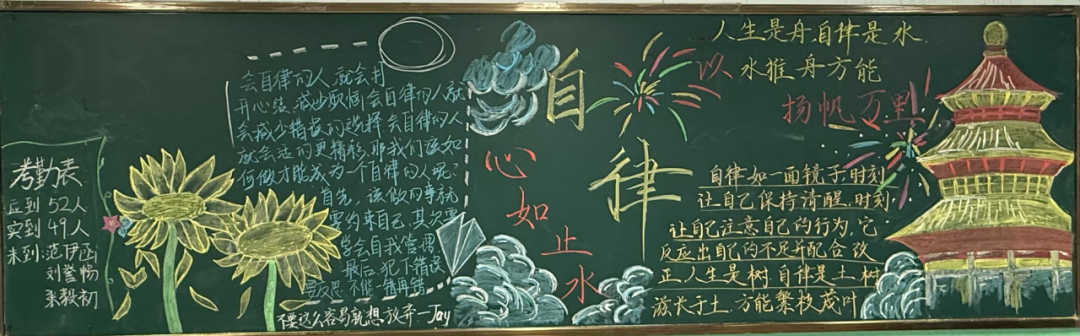 考勤表
应到52人
实到49人
未到:范伊函
刘誉畅
张毅初
会自律的人,就会打
开心结,减少烦恼会自律的人就
会减少错误的选择会自律的人
就会活的更精彩,那我们该如
何做才能成为一个自律的人呢?
首先,该做的事就
要约来自己,其次要
学会自我管理
最后犯下错误
要反思不能一错再错
不要这么容易就想放弃—Jay
心如止水
自律
人生是舟,自律是水,
以水推舟方能
扬帆万里
自律如一面镜子,时刻
让自己保持清醒,时刻
让自己注意自己的行为,它
反应出自己的不足并配合改
正,人生是树,自律是土,树
滋长于土,方能繁枝茂叶